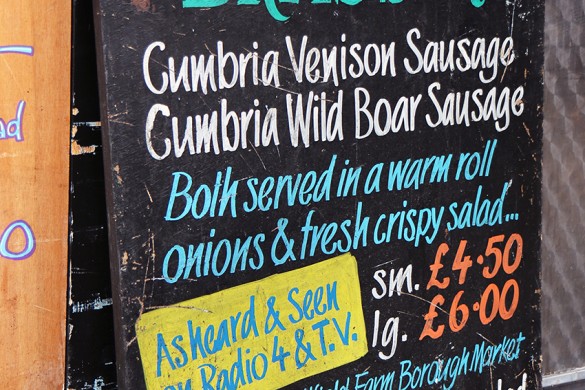 Cumbria Venison Sausage
Cumbria Wild Boar Sausage
Both served in a warm roll
onions & fresh crispy salad...
sm. £4.50
lg. £6.00
As heard & seen
on Radio 4 & T.V.
Farm Borough Market